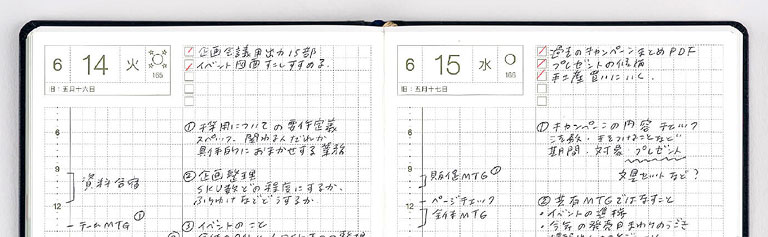 6 14 火 165
旧:五月十六日
企画会議用出力15部
イベント図面すこしすすめる。
6
9
12
資料合宿
チームMTG ①
① 採用についての要件定義
スペック、関わる人だれか
具体的におまかせする業務
② 企画整理
SKU数どの程度にするか、
ふりわけなどどうするか
③ イベントのこと
6 15 水 166
旧:五月十七日
過去のキャンペーンまとめPDF
プレゼントの候補
手土産買いにいく。
6
9
12
販促MTG ①
ページチェック
全体MTG
① キャンペーンの内容チェック
注意点・気をつけることなど
期間・対象 プレゼント
文具セットなど?
② MTGではなすこと
・イベントの進捗
・今年の発売日まわりのうごき